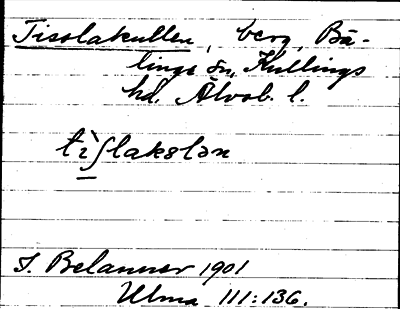 Tisslakullen, berg, Bä-
linge sn, Kullings
hd. Älvsb. l.
tìʃlakɵlən
S. Belanner 1901
Ulma 111:136.